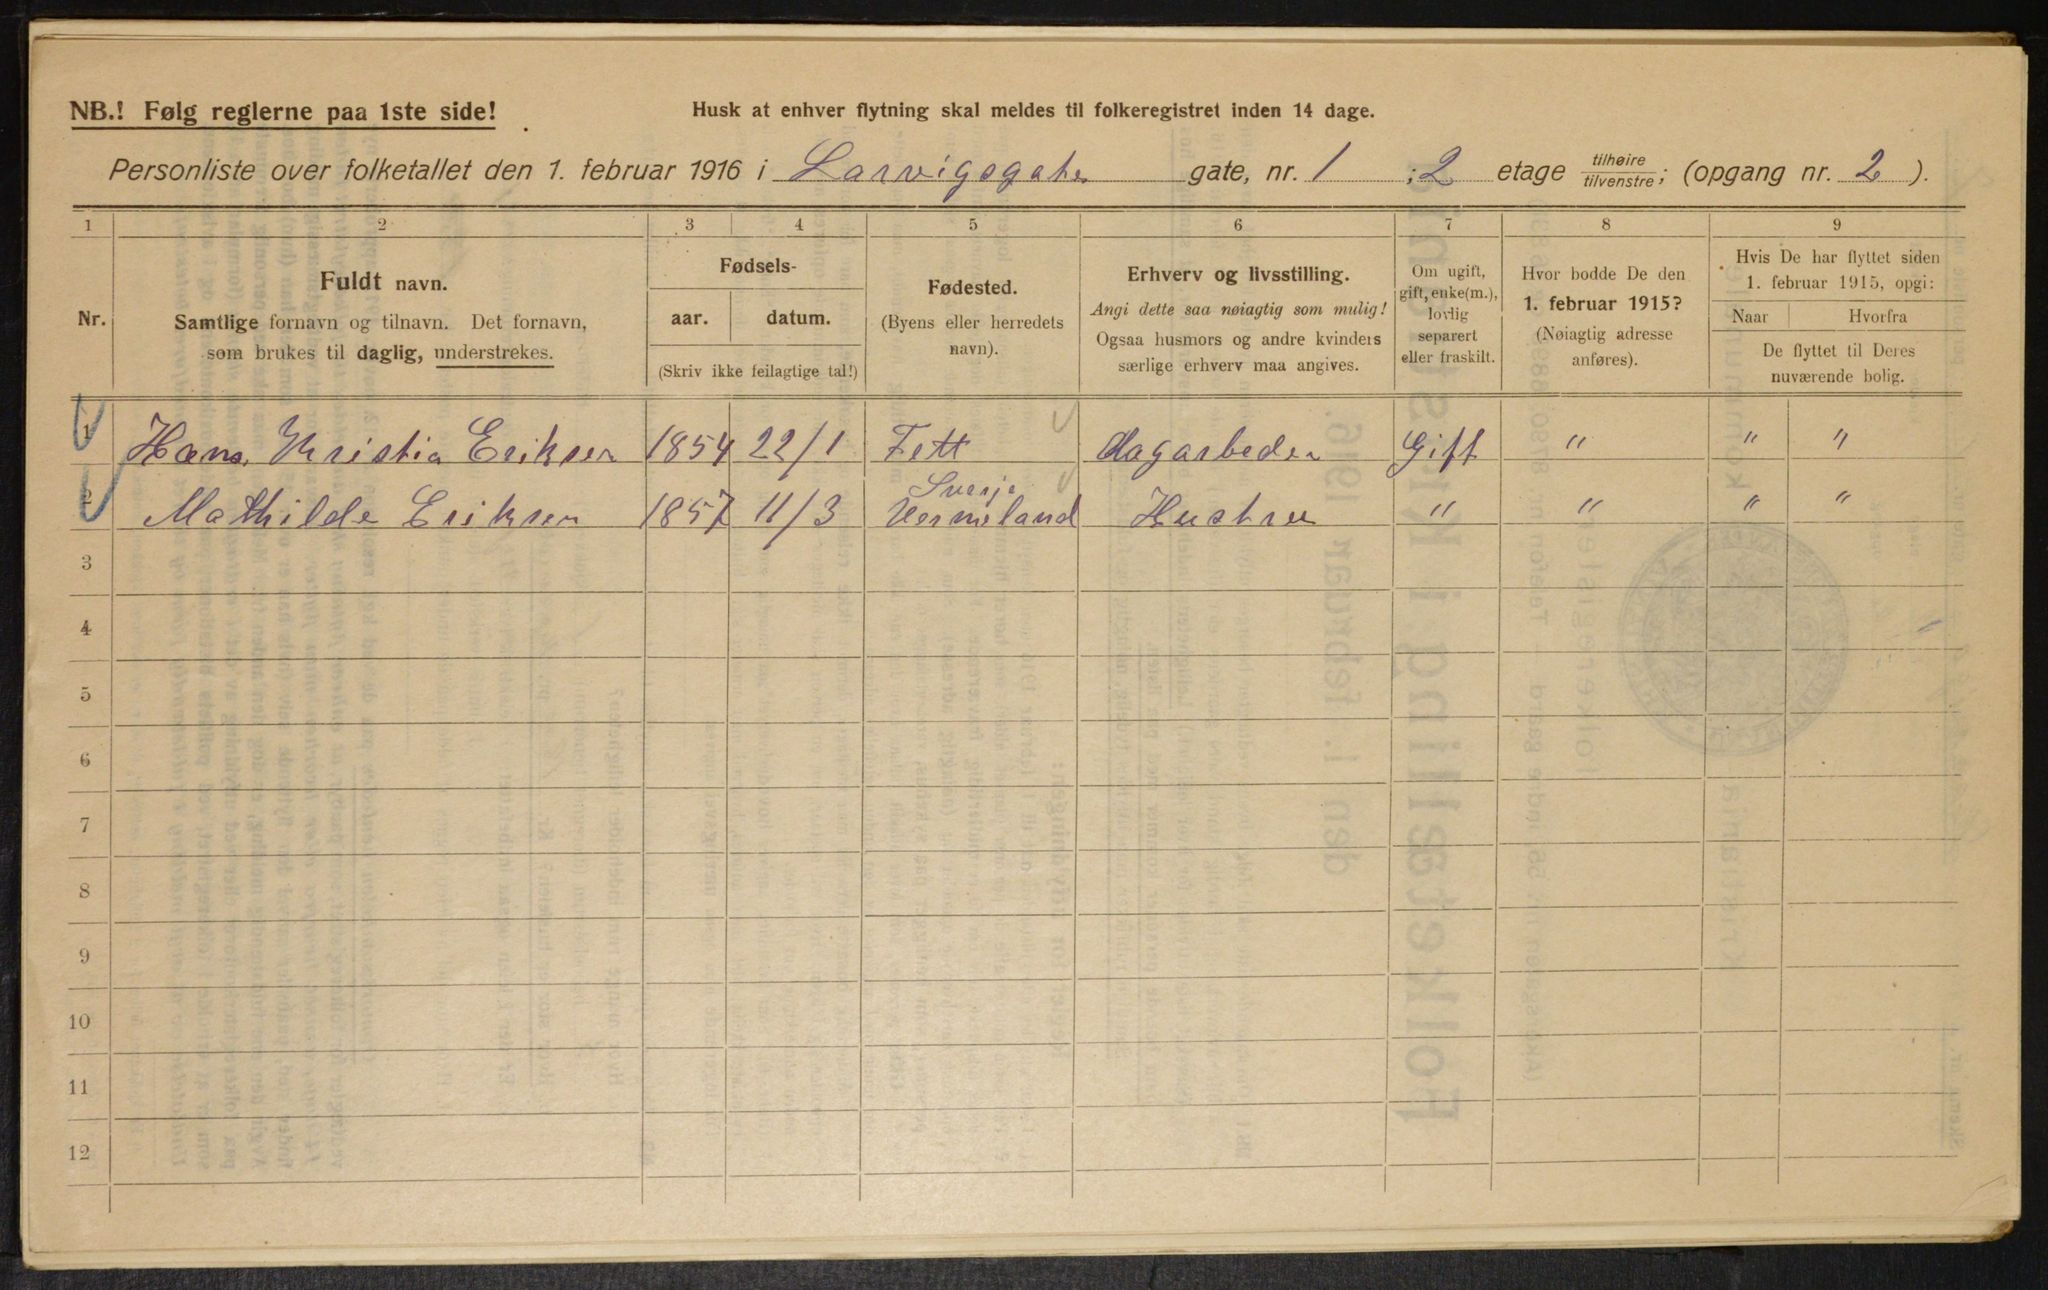 NB.! Følg reglerne paa 1ste side!
Husk at enhver flytning skal meldes til folkeregistret inden 14 dage.
Personliste over folketallet den 1. februar 1916 i Larvigsgaten gate, nr. 1 ; 2 etage tilhøire / tilvenstre ; (opgang nr. 2 ).
1 2 3 4 5 6 7 8 9
Nr.
Fuldt navn.
Samtlige fornavn og tilnavn. Det fornavn,
som brukes til daglig, understrekes.
Fødsels-
aar. datum.
(Skriv ikke feilagtige tal!)
Fødested.
(Byens eller herredets
navn).
Erhverv og livsstilling.
Angi dette saa nøiagtig som mulig!
Ogsaa husmors og andre kvinders
særlige erhverv maa angives.
Om ugift,
gift, enke(m.),
lovlig
separert
eller fraskilt.
Hvor bodde De den
1. februar 1915?
(Nøiagtig adresse
anføres).
Hvis De har flyttet siden
1. februar 1915, opgi:
Naar Hvorfra
De flyttet til Deres
nuværende bolig.
1 Hans Kristia Eriksen 1854 22/1 Fett dagarbeder Gift " " "
2 Mathilde Eriksen 1857 11/3 Sverje Vermeland Hustru " " " "
3
4
5
6
7
8
9
10
11
12